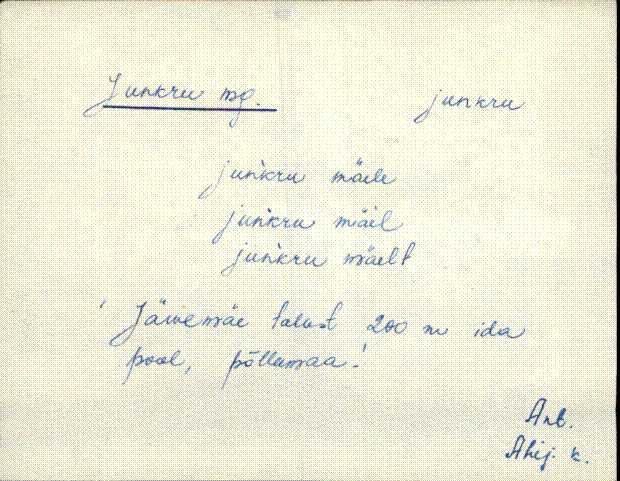 Junkru mg. junkru
jun`kru mäele
jun`kru mäel
jun`kru mäelt
' Järvemäe talust 200 m ida
pool, põllumaa.'
Ant.
Ahij. k.